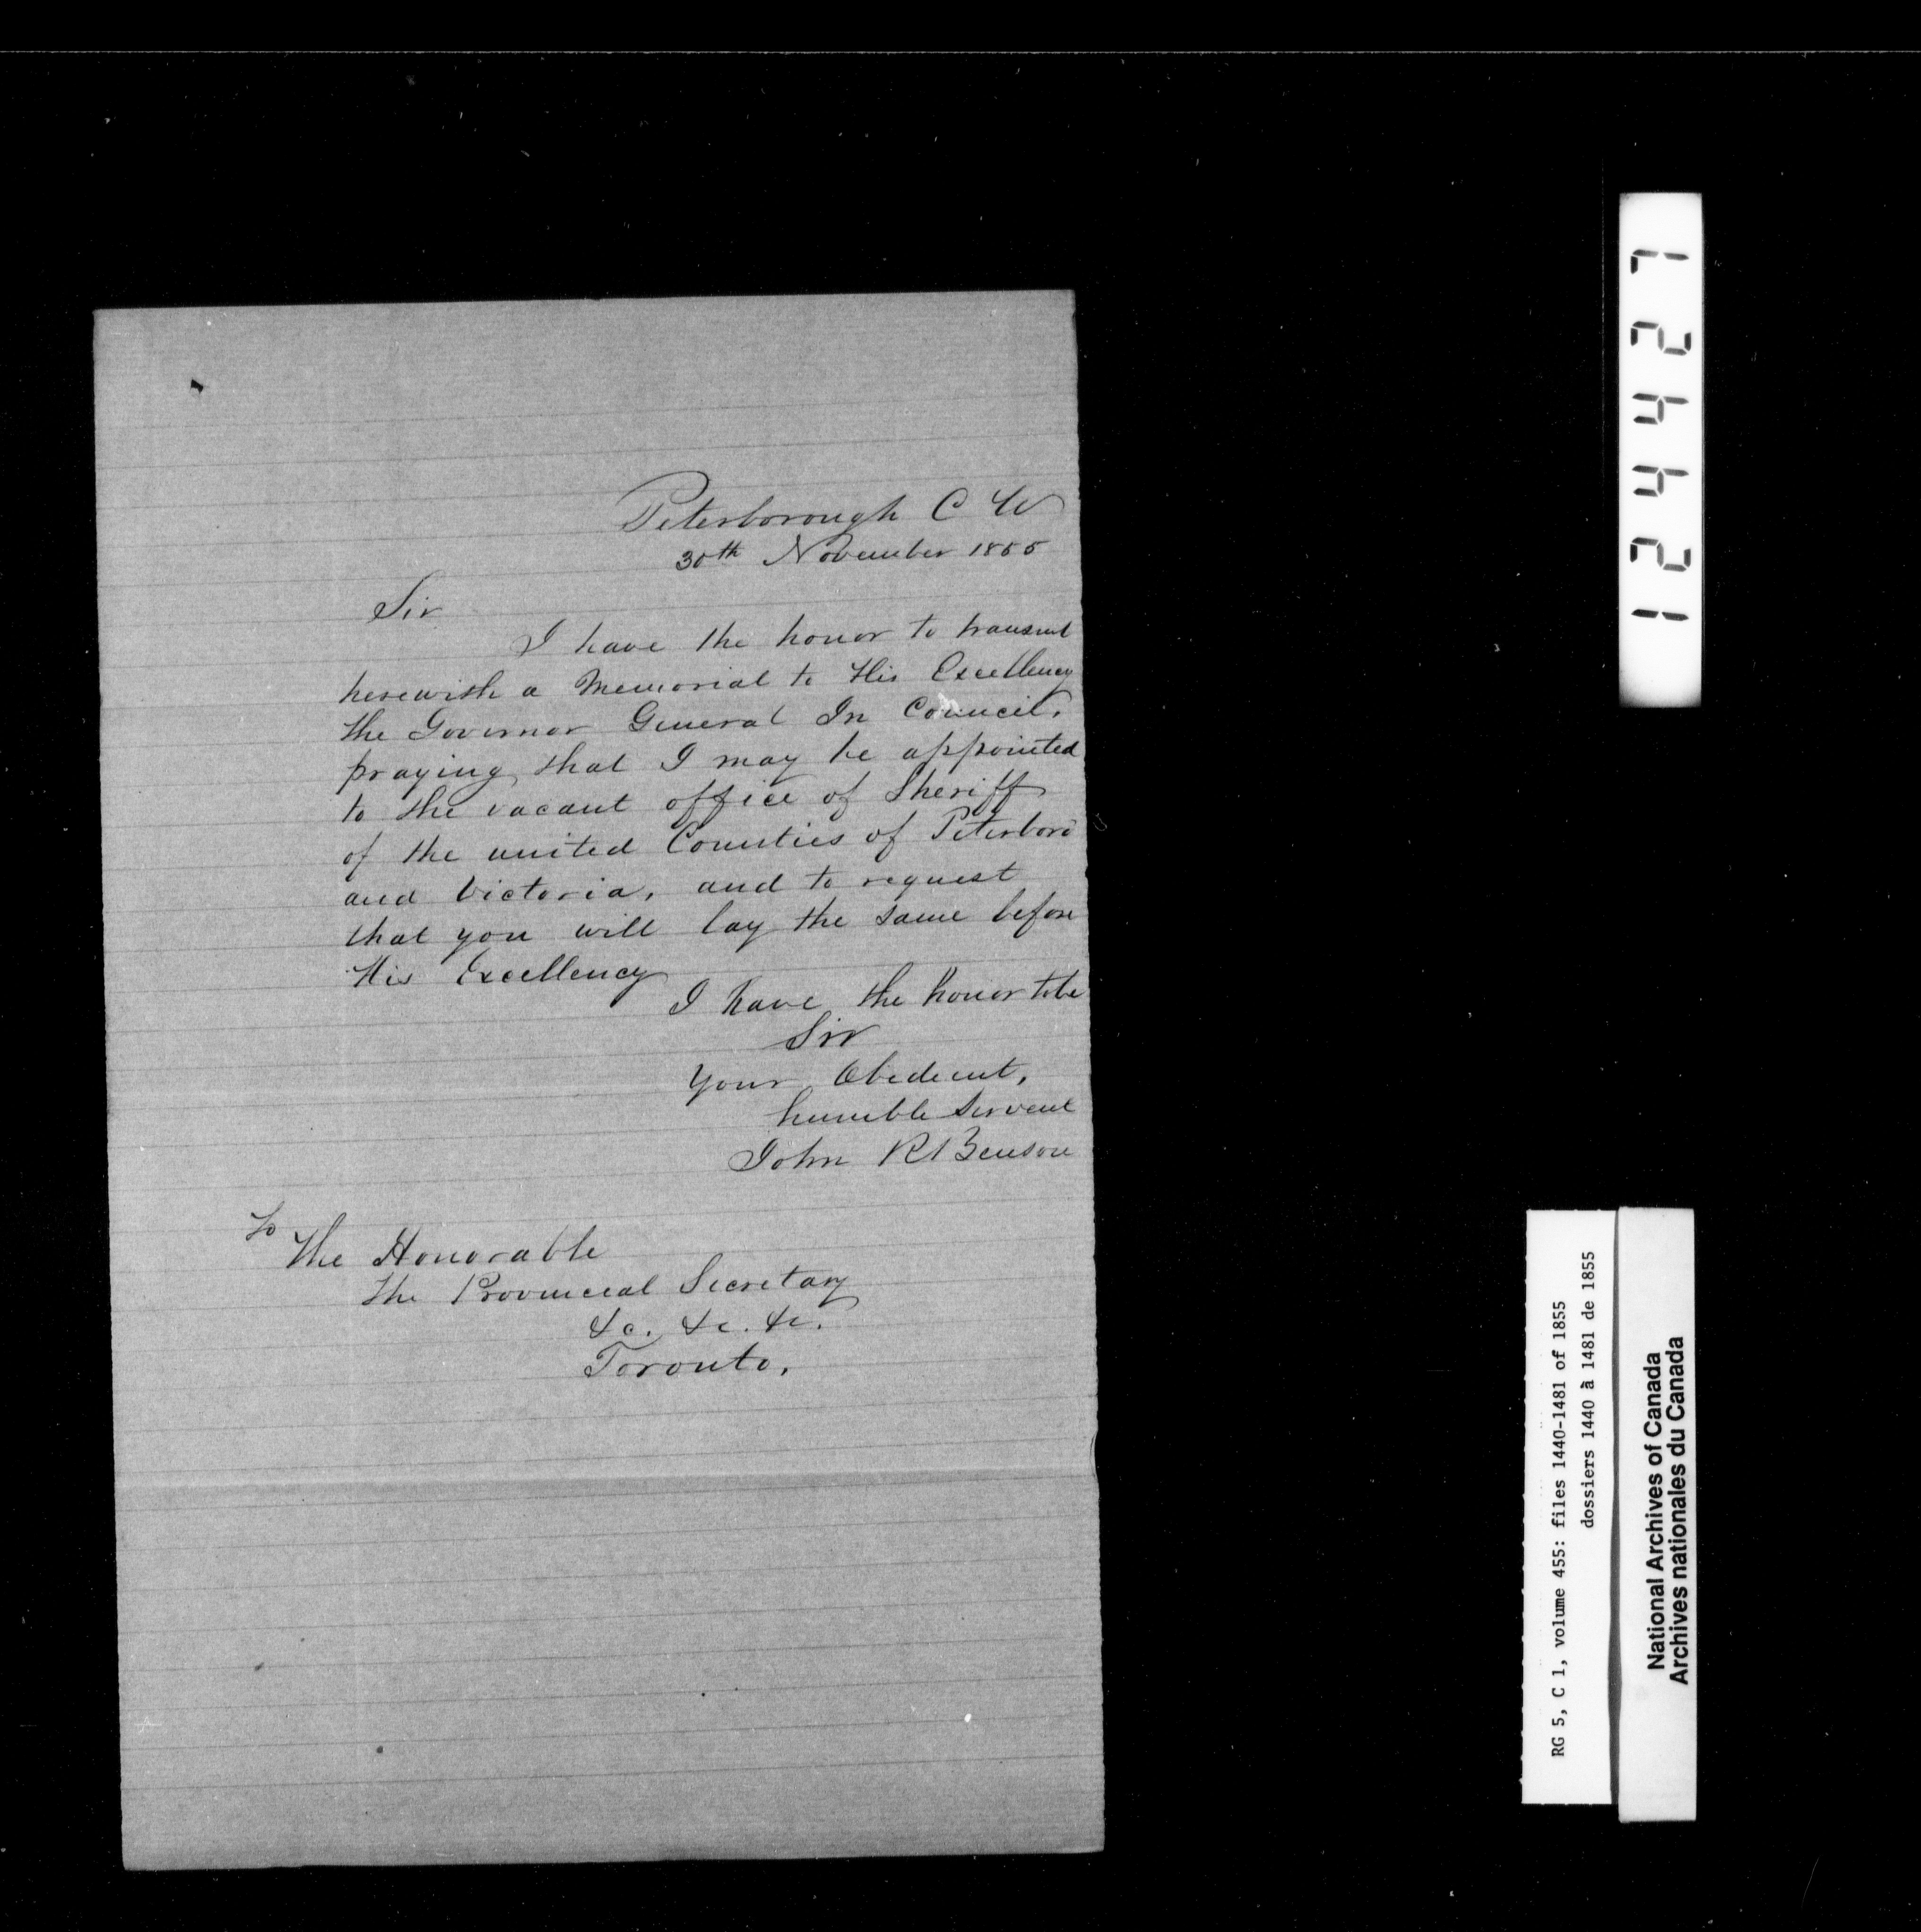 Peterborough C W
30th November 1855
Sir
I have the honor to transmit
herewith a Memorial to His Excellency
the Governor General In Council,
praying that I may be appointed
to the vacant office of Sheriff
of the united Counties of Peterboro
and Victoria, and to request
that you will lay the same before
His Excellency
I have the honor to be
Sir
Your Obedient,
humble Servent
John R Benson
To
The Honorable
the Provincial Secretary
&c. &c. &c.
Toronto,
124427
RG 5, C 1, volume 455: files 1440-1481 of 1855
dossiers 1440 à 1481 de 1855
National Archives of Canada
Archives nationales du Canada